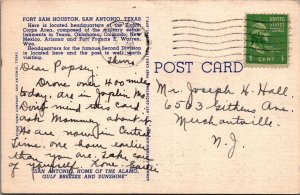 FORT SAM HOUSTON, SAN ANTONIO, TEXAS
Here is located headquarters of the Eighth
Corps Area, composed of the military establish-
ments in Texas, Oklahoma, Colorado, New
Mexico, Arizona and Fort Francis E. Warren,
Wyo.
Headquarters for the famous Second Division
is located here and the post is well worth
visiting.
Thurs.
Dear Popsy,
Drove over 400 miles
today, are in Joplin, Mo.
Don't mind this card,
ask Mommy about it.
We are now in Central
Time, one hour earlier
than you are. Take care
of yourself. Love,
"SAN ANTONIO, HOME OF THE ALAMO,
GULF BREEZES AND SUNSHINE"
POST CARD
UNITED STATES
POSTAGE
1 CENT
Mr. Joseph H. Hall,
6503 Githens Ave.
Merchantville,
N. J.